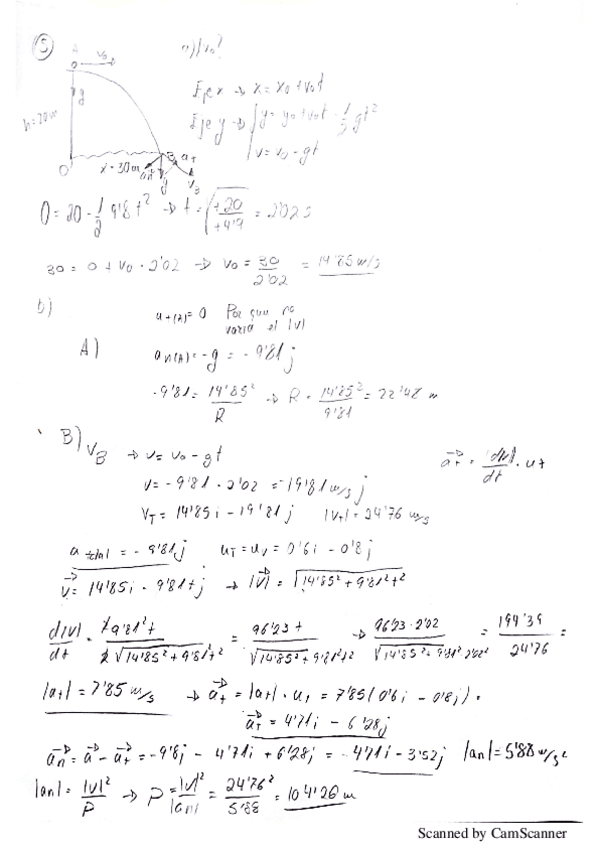 5
A
v₀
a) |v₀?
g
h=20m
Eje x → x = x₀ + v₀t
Eje y → y = y₀ + v₀t - 1/2 gt²
v = v₀ - gt
O
x = 30m
B
aT
an
g
vB
0 = 20 - 1/2 9'8 t² → t = √(+20/+4'9) = 2'02 s
30 = 0 + v₀ · 2'02 → v₀ = 30/2'02 = 14'85 m/s
b)
at(A) = 0 Por que no
varia el |v|
A)
an(A) = -g = -9'81 j
-9'81 = 14'85²/R → R = 14'85²/9'81 = 22'48 m
B)
vB → v = v₀ - gt
aT = d|v|/dt · ut
v = -9'81 · 2'02 = -19'81 m/s j
vT = 14'85 i - 19'81 j |vt| = 24'76 m/s
a total = -9'81 j uT = uv = 0'6 i - 0'8 j
v = 14'85 i - 9'81 t j → |v| = √(14'85² + 9'81² t²)
d|v|/dt = 2 9'81² t / 2√(14'85² + 9'81² t²) = 96'23 t / √(14'85² + 9'81² t²) → 96'23 · 2'02 / √(14'85² + 9'81² 2'02²) = 194'39 / 24'76 =
|at| = 7'85 m/s → at = |at| · ut = 7'85 (0'6 i - 0'8 j) =
at = 4'71 i - 6'28 j
an = a - at = -9'8 j - 4'71 i + 6'28 j = -4'71 i - 3'52 j |an| = 5'88 m/s²
|an| = |v|²/ρ → ρ = |v|²/|an| = 24'76²/5'88 = 104'26 m
Scanned by CamScanner